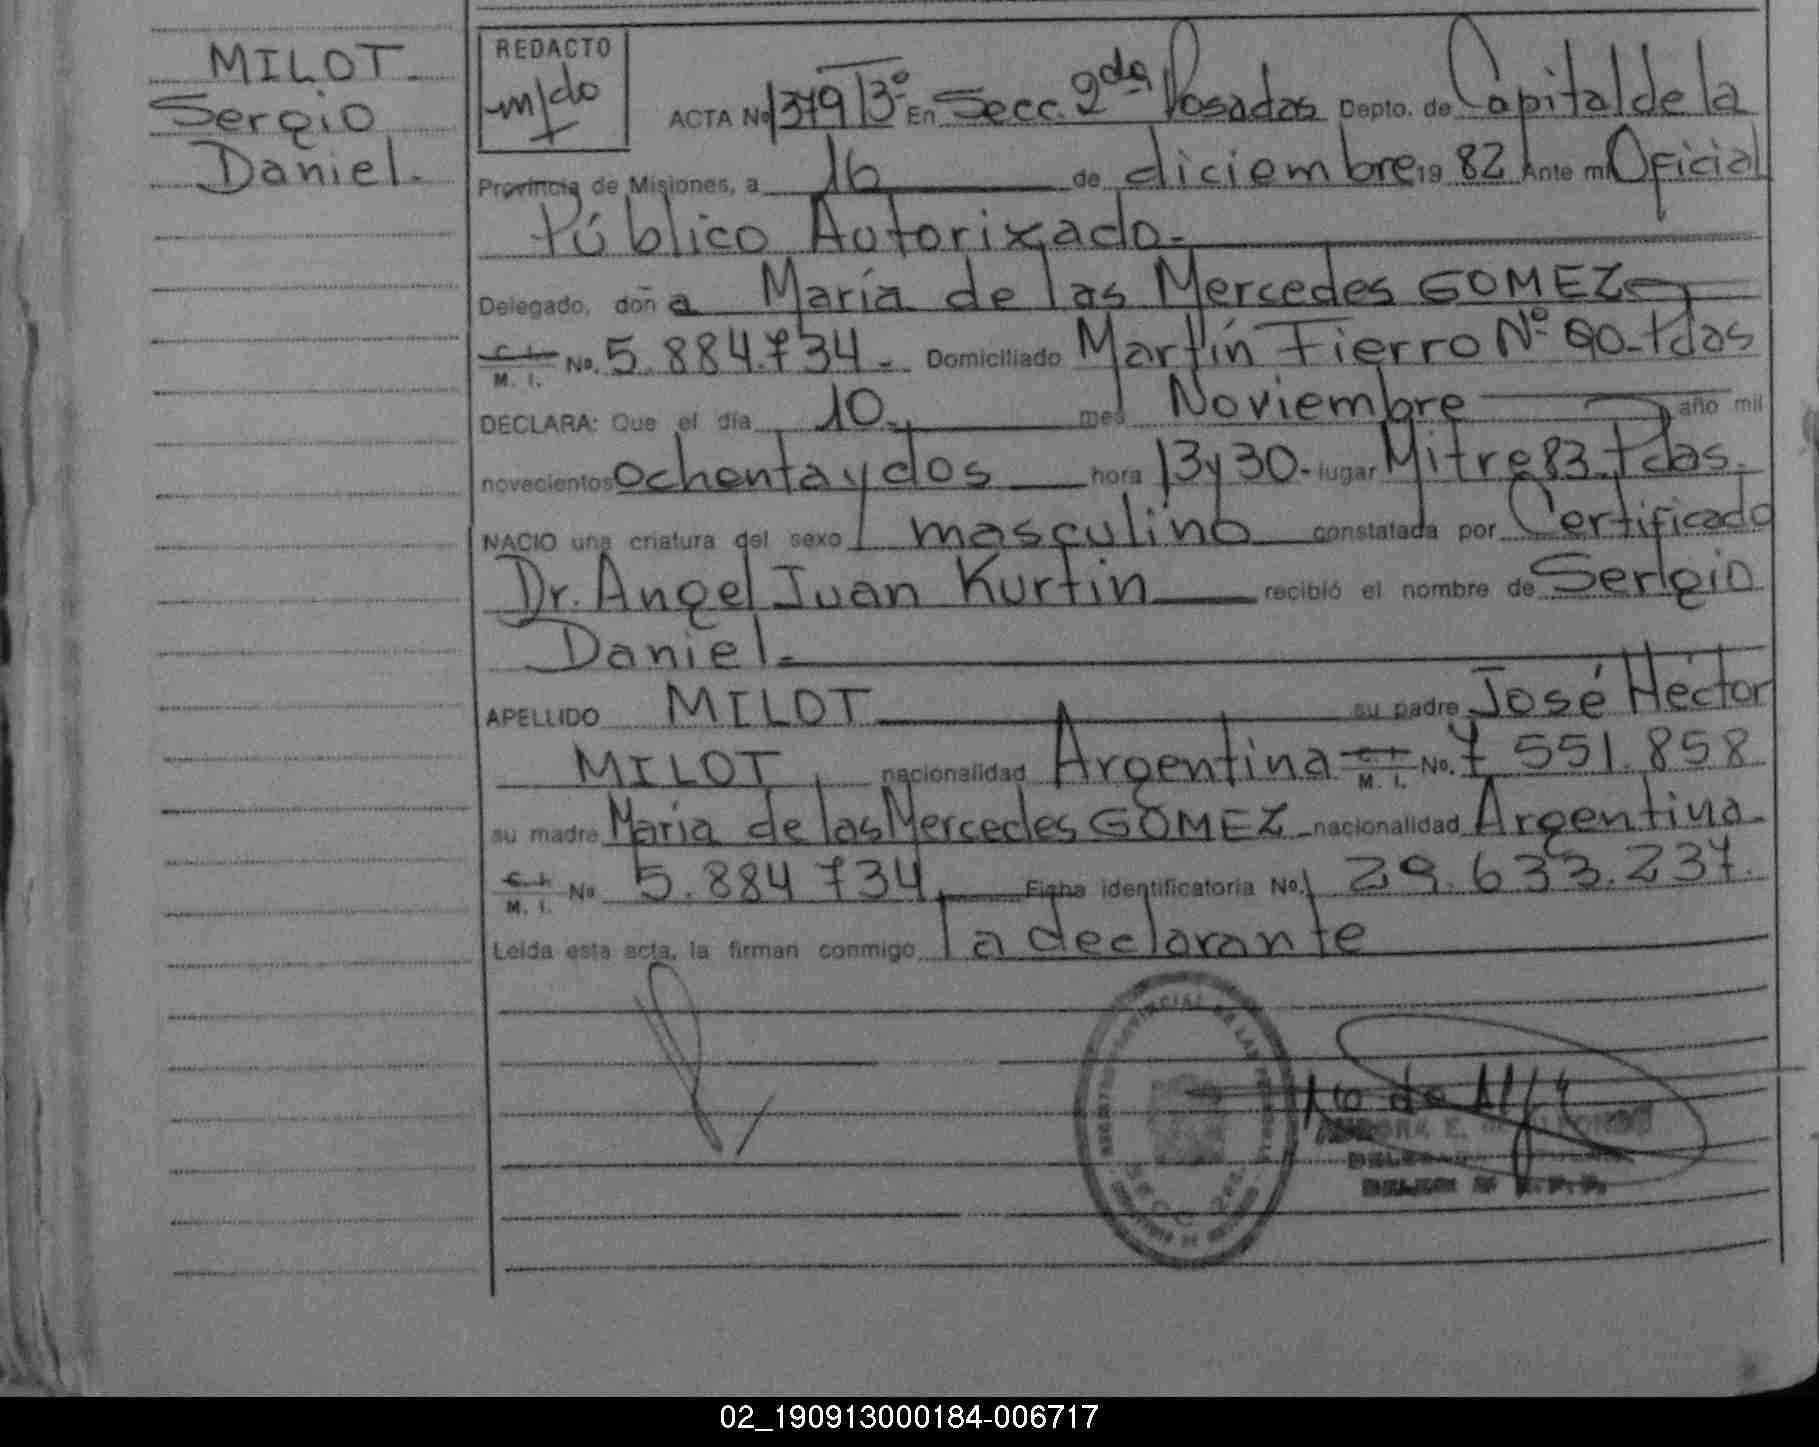 MILOT.
Sergio
Daniel.
REDACTO
m/do
ACTA Nº 1379 / 3º En Secc. 2da Posadas Depto. de Capital de la
Provincia de Misiones, a 16 de diciembre 19 82 Ante mi Oficial
Público Autorizado.-
Delegado, doña María de las Mercedes GOMEZ
C. I. M. I. No. 5.884.734.- Domiciliado Martín Fierro Nº 90-Pdas
DECLARA: Que el día 10 mes Noviembre año mil
novecientos ochenta y dos hora 13 y 30.- lugar Mitre 83-Pdas.
NACIO una criatura del sexo masculino constatada por Certificado
Dr. Angel Juan Kurtin recibió el nombre de Sergio
Daniel.-
APELLIDO MILOT su padre José Héctor
MILOT nacionalidad Argentina C. I. M. I. No. 7.551.858
su madre María de las Mercedes GOMEZ nacionalidad Argentina-
C. I. M. I. No 5.884.734 Ficha identificatoria No. 29.633.237.
Leída esta acta, la firman conmigo la declarante
SECC. 2da.
02_190913000184-006717